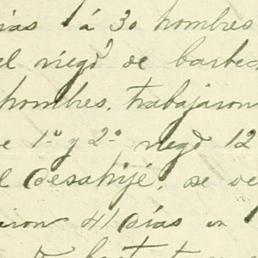 ias 1 á 30 hombres
el riego de barbec
hombres, trabajaron
e 1º y 2º riego 12
l desahijé, se ve
aron 41 días en